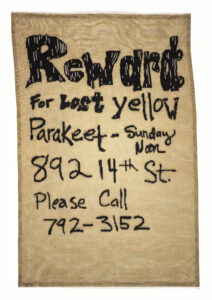 Reward
For Lost yellow
Parakeet - Sunday
Noon
892 14th St.
Please Call
792-3152